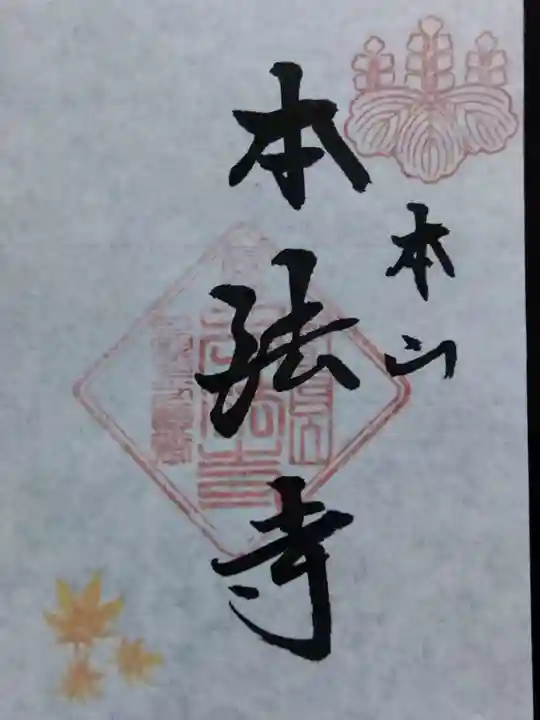 本山
本法寺